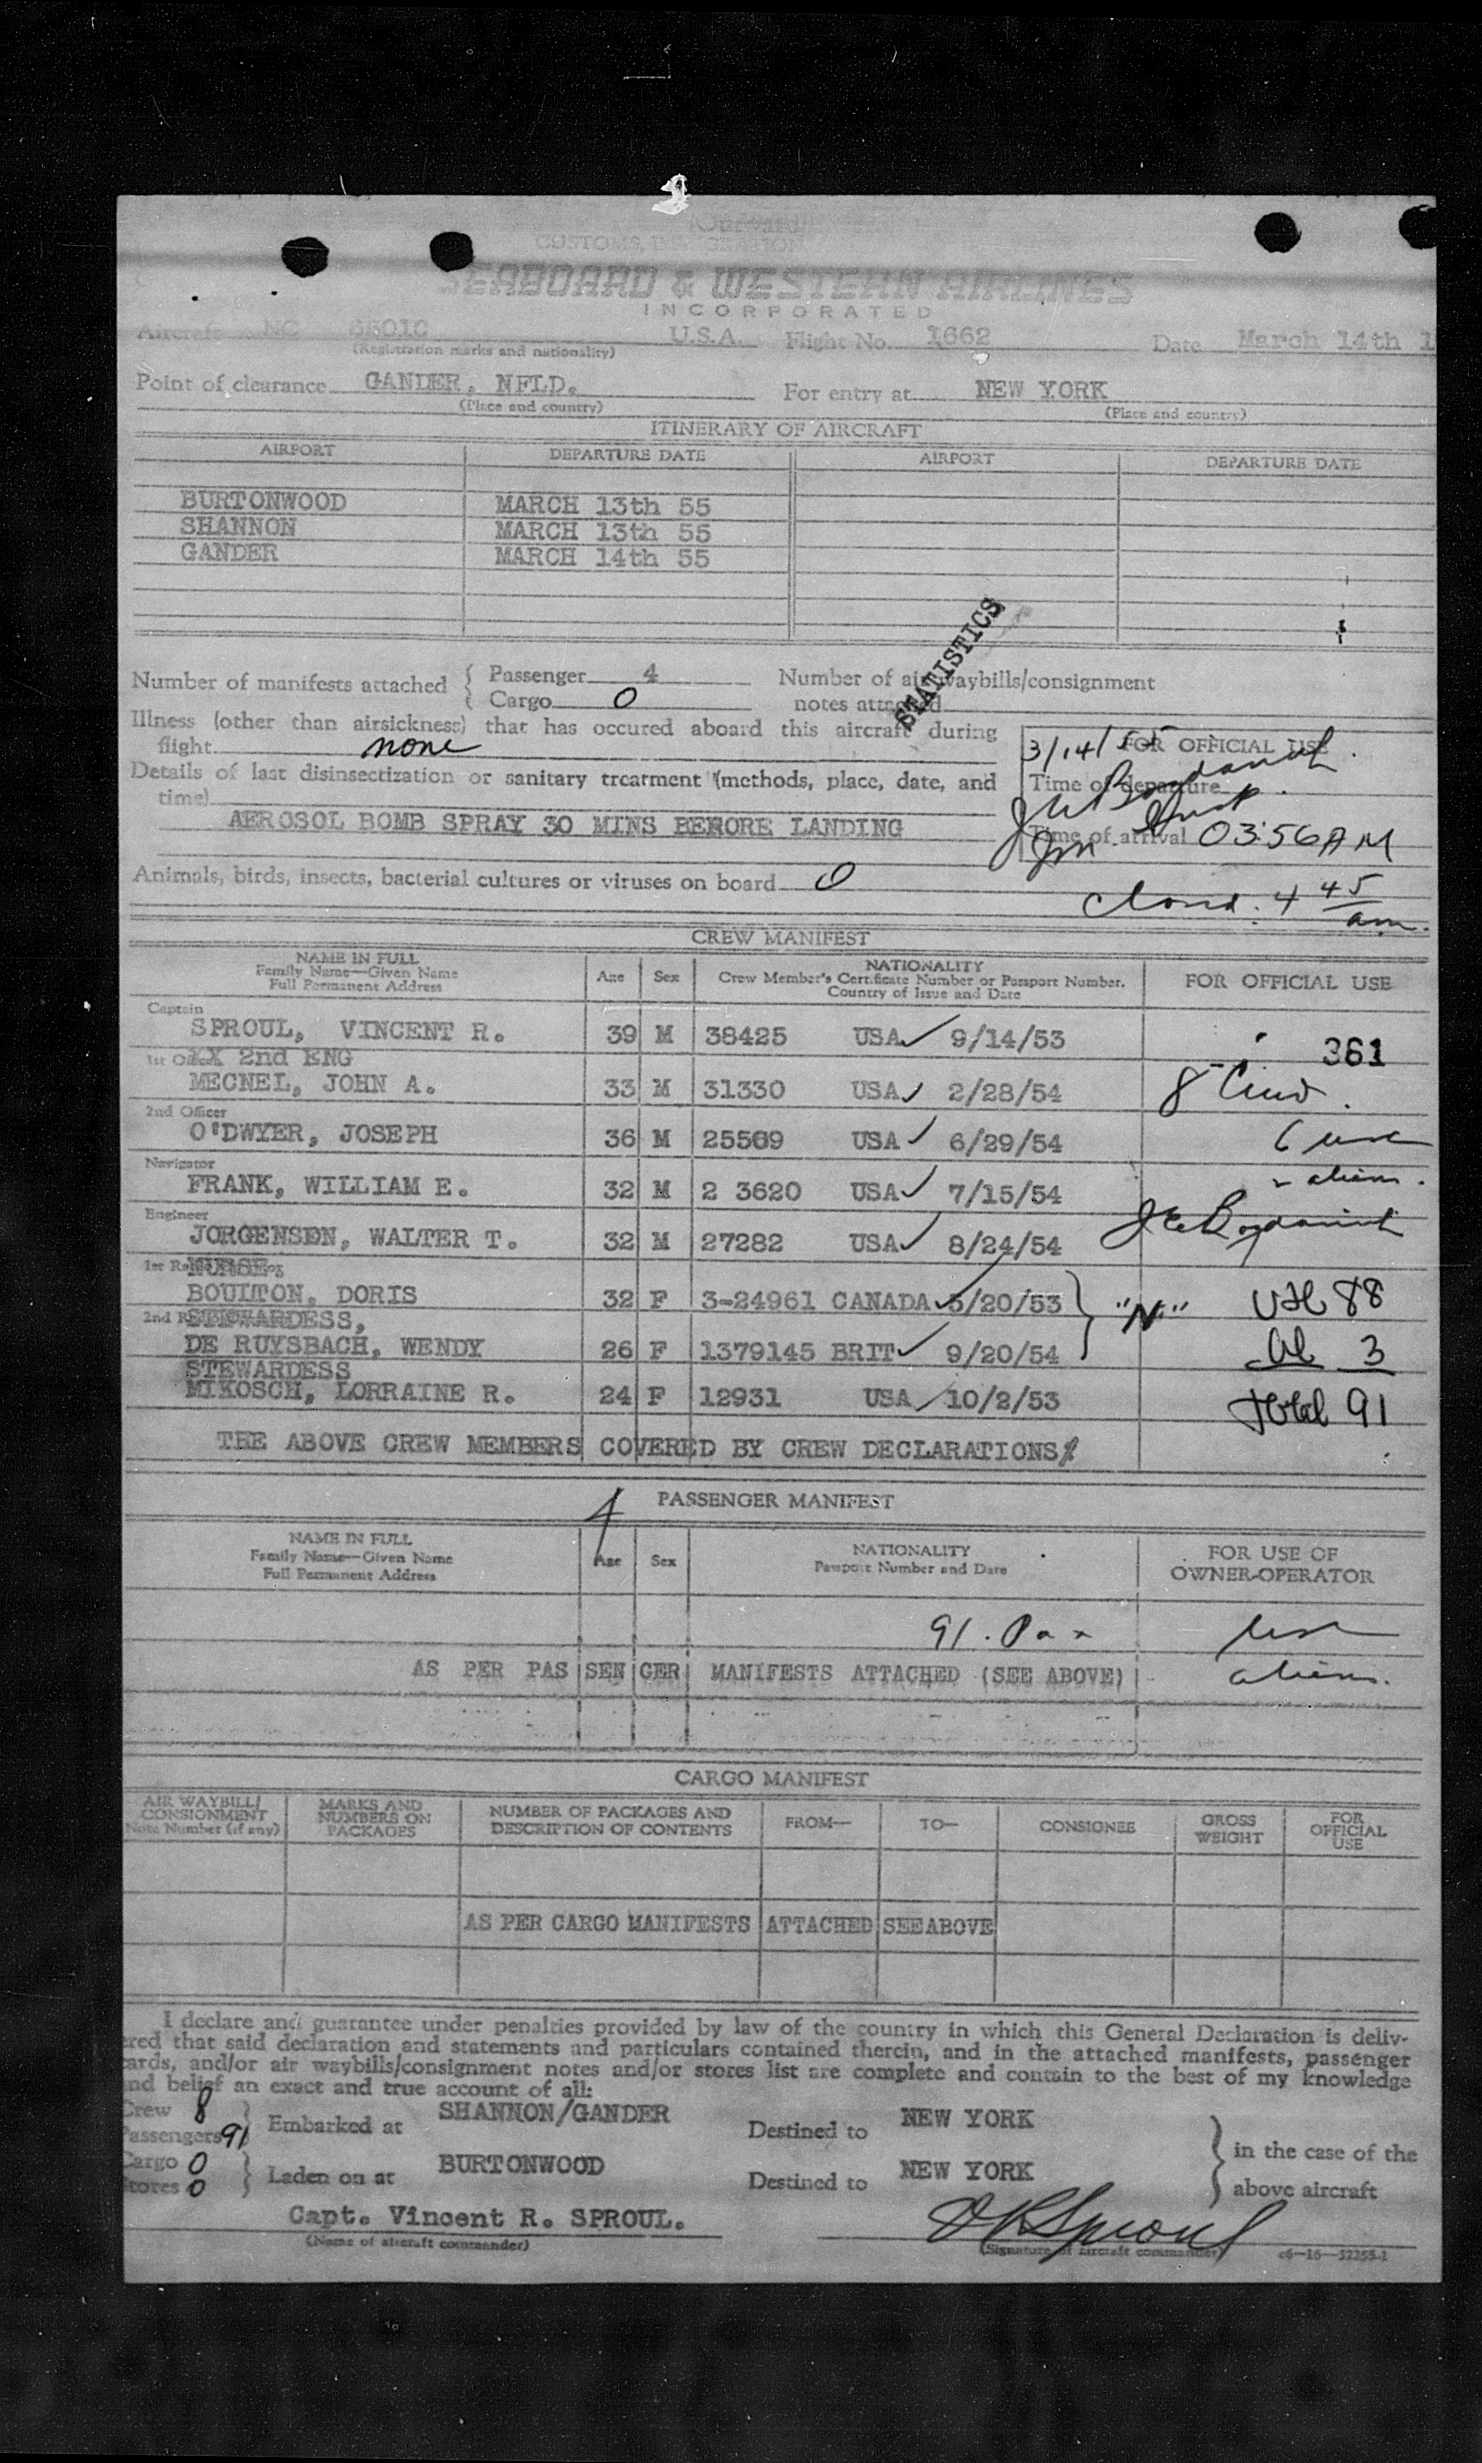 CUSTOMS,
SEABOARD & WESTERN AIRLINES
INCORPORATED
Aircraft NC U.S.A. Flight No. 1662 Date March 14th 1
(Registration marks and nationality)
Point of clearance GANDER, NFLD. For entry at NEW YORK
(Place and country) (Place and country)
ITINERARY OF AIRCRAFT
AIRPORT DEPARTURE DATE AIRPORT DEPARTURE DATE
BURTONWOOD MARCH 13th 55
SHANNON MARCH 13th 55
GANDER MARCH 14th 55
STATISTICS
Number of manifests attached { Passenger 4 Number of air waybills/consignment
Cargo 0 notes attached
Illness (other than airsickness) that has occured aboard this aircraft during
flight none
3/14/55 FOR OFFICIAL USE
Details of last disinsectization or sanitary treatment (methods, place, date, and
time)
Time of departure
AEROSOL BOMB SPRAY 30 MINS BERORE LANDING
Time of arrival 03:56 AM
Animals, birds, insects, bacterial cultures or viruses on board 0
4 45 am.
CREW MANIFEST
NAME IN FULL
Family Name—Given Name
Full Permanent Address
Age Sex
NATIONALITY
Crew Member's Certificate Number or Passport Number.
Country of Issue and Date
FOR OFFICIAL USE
Captain
SPROUL, VINCENT R. 39 M 38425 USA 9/14/53
361
1st Officer XX 2nd ENG
MECNEL, JOHN A. 33 M 31330 USA 2/28/54
8 Crew
2nd Officer
O'DWYER, JOSEPH 36 M 25569 USA 6/29/54
6 usc
Navigator
FRANK, WILLIAM E. 32 M 2 3620 USA 7/15/54
2 aliens.
Engineer
JORGENSEN, WALTER T. 32 M 27282 USA 8/24/54
NURSE,
BOULTON, DORIS 32 F 3-24961 CANADA 5/20/53 } "N" USC 88
STEWARDESS,
DE RUYSBACH, WENDY 26 F 1379145 BRIT 9/20/54 Al 3
STEWARDESS
MIKOSCH, LORRAINE R. 24 F 12931 USA 10/2/53 total 91
THE ABOVE CREW MEMBERS COVERED BY CREW DECLARATIONS
PASSENGER MANIFEST
4
NAME IN FULL
Family Name—Given Name
Full Permanent Address
Age Sex
NATIONALITY
Passport Number and Date
FOR USE OF
OWNER-OPERATOR
91. Pax usc
AS PER PAS SEN GER MANIFESTS ATTACHED (SEE ABOVE) aliens.
CARGO MANIFEST
AIR WAYBILL/
CONSIGNMENT
Note Number (if any)
MARKS AND
NUMBERS ON
PACKAGES
NUMBER OF PACKAGES AND
DESCRIPTION OF CONTENTS
FROM— TO— CONSIGNEE
GROSS
WEIGHT
FOR
OFFICIAL
USE
AS PER CARGO MANIFESTS ATTACHED SEE ABOVE
I declare and guarantee under penalties provided by law of the country in which this General Declaration is deliv-
ered that said declaration and statements and particulars contained therein, and in the attached manifests, passenger
cards, and/or air waybills/consignment notes and/or stores list are complete and contain to the best of my knowledge
and belief an exact and true account of all:
Crew 8
Passengers 91 } Embarked at SHANNON/GANDER Destined to NEW YORK
Cargo 0
Stores 0 } Laden on at BURTONWOOD Destined to NEW YORK
} in the case of the
above aircraft
Capt. Vincent R. SPROUL. V R Sproul
(Name of aircraft commander) (Signature of aircraft commander) c6—16—52255-1